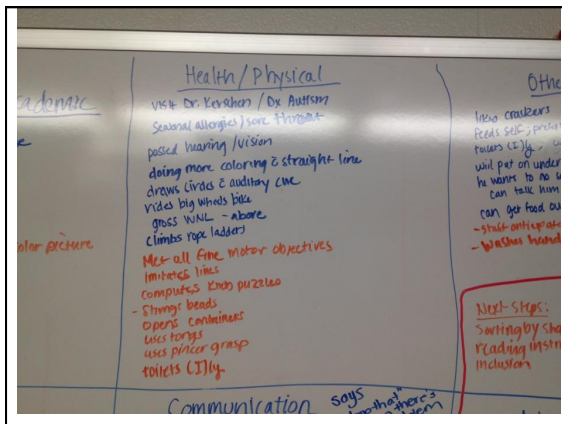 Health/Physical
visit Dr. Kerschen / Dx Autism
Seasonal allergies / sore throat
passed hearing / vision
doing more coloring c̄ straight line
draws circles c̄ auditory cue
rides big wheels bike
gross WNL - above
climbs rope ladders
Met all fine motor objectives
imitates lines
completes knob puzzles
- Strings beads
opens containers
uses tongs
uses pincer grasp
toilets (I)ly.
cademic
color picture
Othe
likes crackers
feeds self,
toilets (I)ly,
will put on under
he wants to no
can talk him
can get food ou
- start anticipate
- Washes hand
Next Steps:
Sorting by sha
reading instr
inclusion
Communication
says
there's